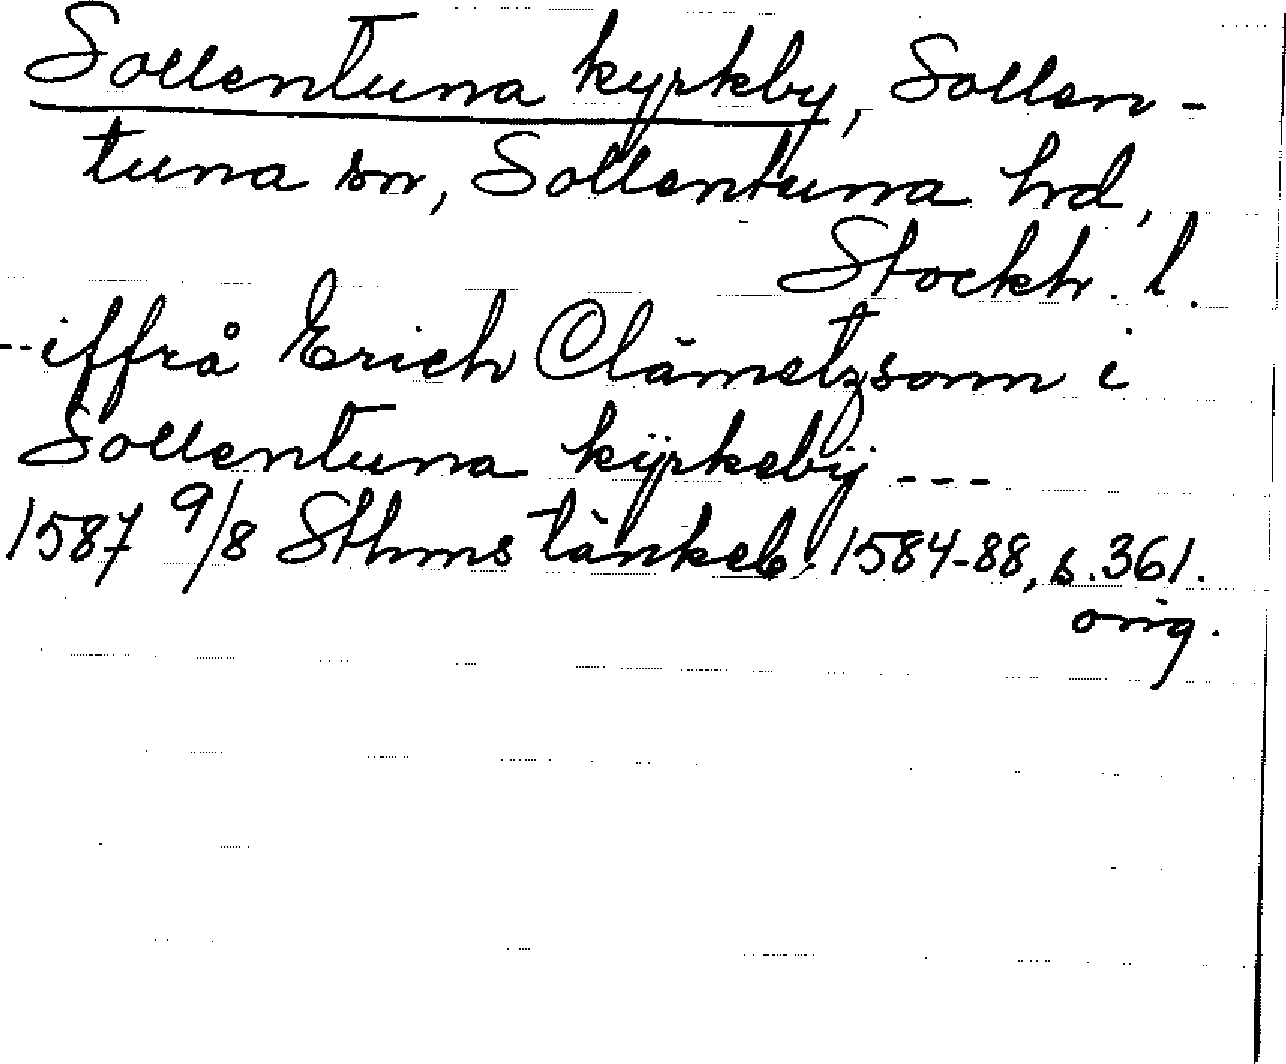 Sollentuna kyrkby, Sollen-
tuna sn, Sollentuna hrd,
Stockh. l.
--iffrå Erich Clämetzsonn i
Sollentuna kÿrkebÿ ---
1587 9/8 Sthms tänkeb. 1584-88, s. 361.
orig.